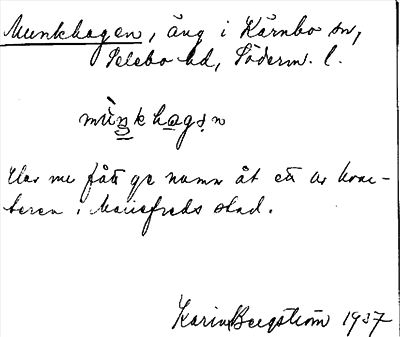 Munkhagen, äng i Kärnbo sn,
Selebo hd, Söderm. l.
mùŋkhagən
Har nu fått ge namn åt ett av kvar-
teren i Mariefreds stad.
Karin Bergström 1937